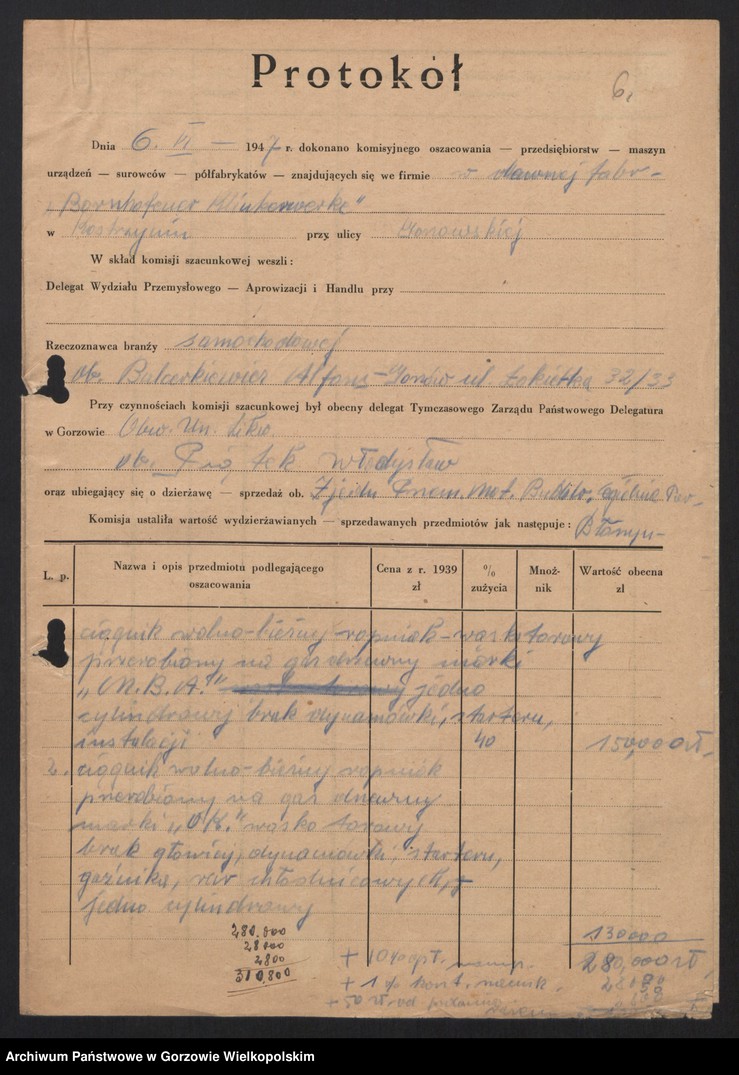 Protokół
6.
Dnia 6. VI — 1947 r. dokonano komisyjnego oszacowania — przedsiębiorstw — maszyn
urządzeń — surowców — półfabrykatów — znajdujących się we firmie w dawnej fabr-
w Kostrzyniu przy ulicy
W skład komisji szacunkowej weszli :
Delegat Wydziału Przemysłowego — Aprowizacji i Handlu przy
Rzeczoznawca branży samochodowej
ob. Balcerkiewicz Alfons - Gorzów ul. Łokietka 32/33
Przy czynnościach komisji szacunkowej był obecny delegat Tymczasowego Zarządu Państwowego Delegatura
w Gorzowie Obw. Un. Likw.
ob. Piątek Władysław
oraz ubiegający się o dzierżawę — sprzedaż ob. Zjedn. Przem. Mat. Budowl.
Komisja ustaliła wartość wydzierżawianych — sprzedawanych przedmiotów jak następuje :
L. p. Nazwa i opis przedmiotu podlegającego oszacowania Cena z r. 1939 zł % zużycia Mnoż-nik Wartość obecna zł
ciągnik wolno-bieżny ropniak - wąskotorowy
przerobiony na gaz drzewny marki
"M.B.A." jedno
cylindrowy brak dynamówki, starteru,
instalacji 40 150,000 zł,
2. ciągnik wolno-bieżny ropniak
przerobiony na gaz drzewny
marki "O.K." wąsko torowy
brak głowicy, dynamówki, starteru,
gaźnika, rur chłodnicowych,
jedno cylindrowy
130000
280.000 280,000 zł,
28000
2800
310,800